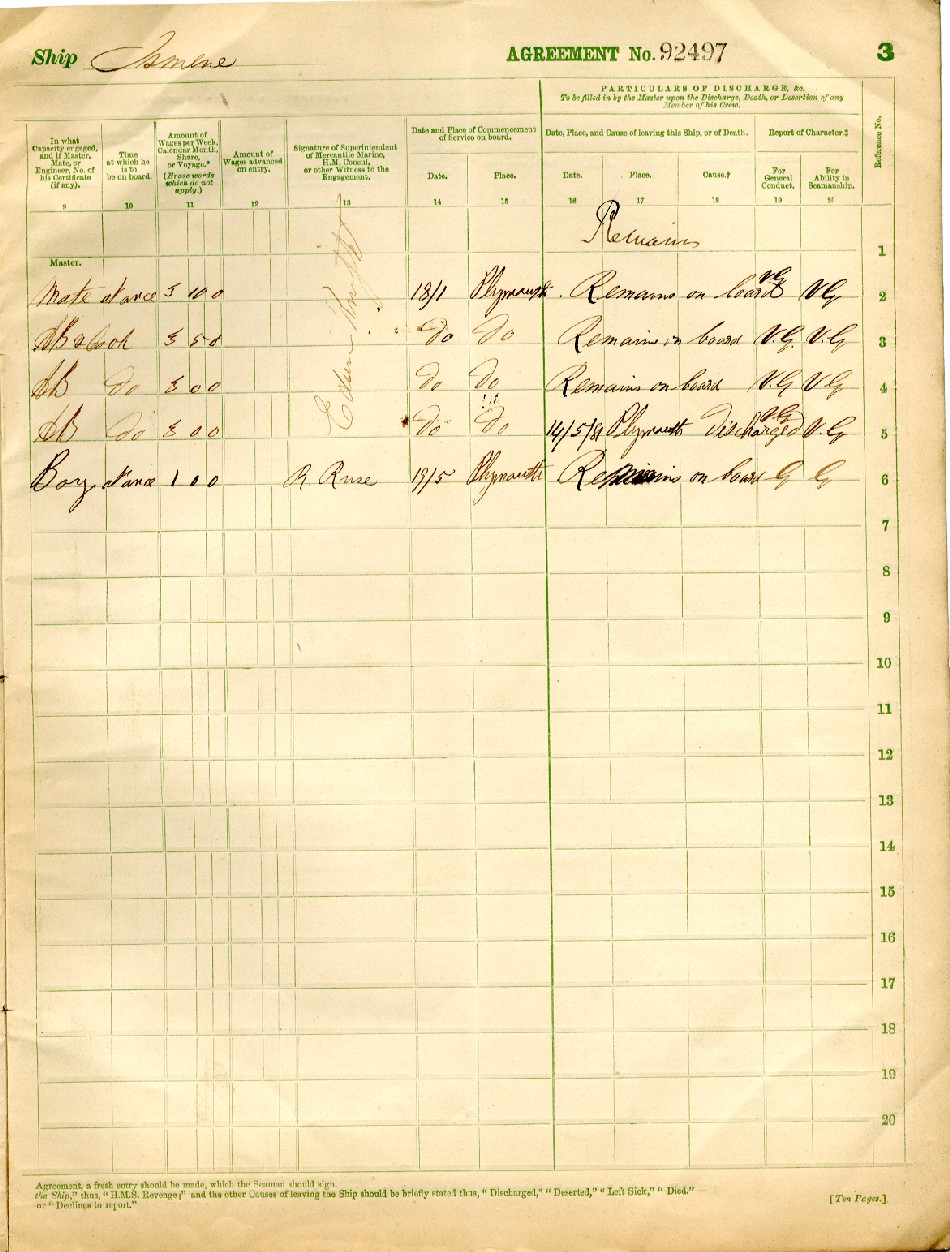 Ship Ismene AGREEMENT No. 92497 3
PARTICULARS OF DISCHARGE, &c.
To be filled in by the Master upon the Discharge, Death, or Desertion of any
Member of his Crew.
In what Capacity engaged, and if Master, Mate, or Engineer, No. of his Certificate (if any).
Time at which he is to be on board.
Amount of Wages per Week, Calendar Month, Share, or Voyage.* (Erase words which do not apply.)
Amount of Wages advanced on entry.
Signature of Superintendent of Mercantile Marine, H.M. Consul, or other Witness to the Engagement.
Date and Place of Commencement of Service on board.
Date. Place.
Date, Place, and Cause of leaving this Ship, or of Death.
Date. Place. Cause.†
Report of Character.‡
For General Conduct. For Ability in Seamanship.
Reference No.
9 10 11 12 13 14 15 16 17 18 19 20
Remains 1
Master.
Mate at once 3 10 0 18/1 Plymouth Remains on board VG VG 2
AB & Cook 3 5 0 Do Do Remains on board V.G. V.G 3
AB Do 3 0 0 Do Do Remains on board V.G V G 4
AB Do 3 0 0 Do Do 14/5/81 Plymouth Discharged VG V.G 5
Boy at once 1 0 0 R Ruse 19/5 Plymouth Remains on board G G 6
7
8
9
10
11
12
13
14
15
16
17
18
19
20
Agreement, a fresh entry should be made, which the Seaman should sign.
the Ship," thus, "H.M.S. Revenge;" and the other Causes of leaving the Ship should be briefly stated thus, "Discharged," "Deserted," "Left Sick," "Died."
or "Declines to report."
[Ten Pages.]